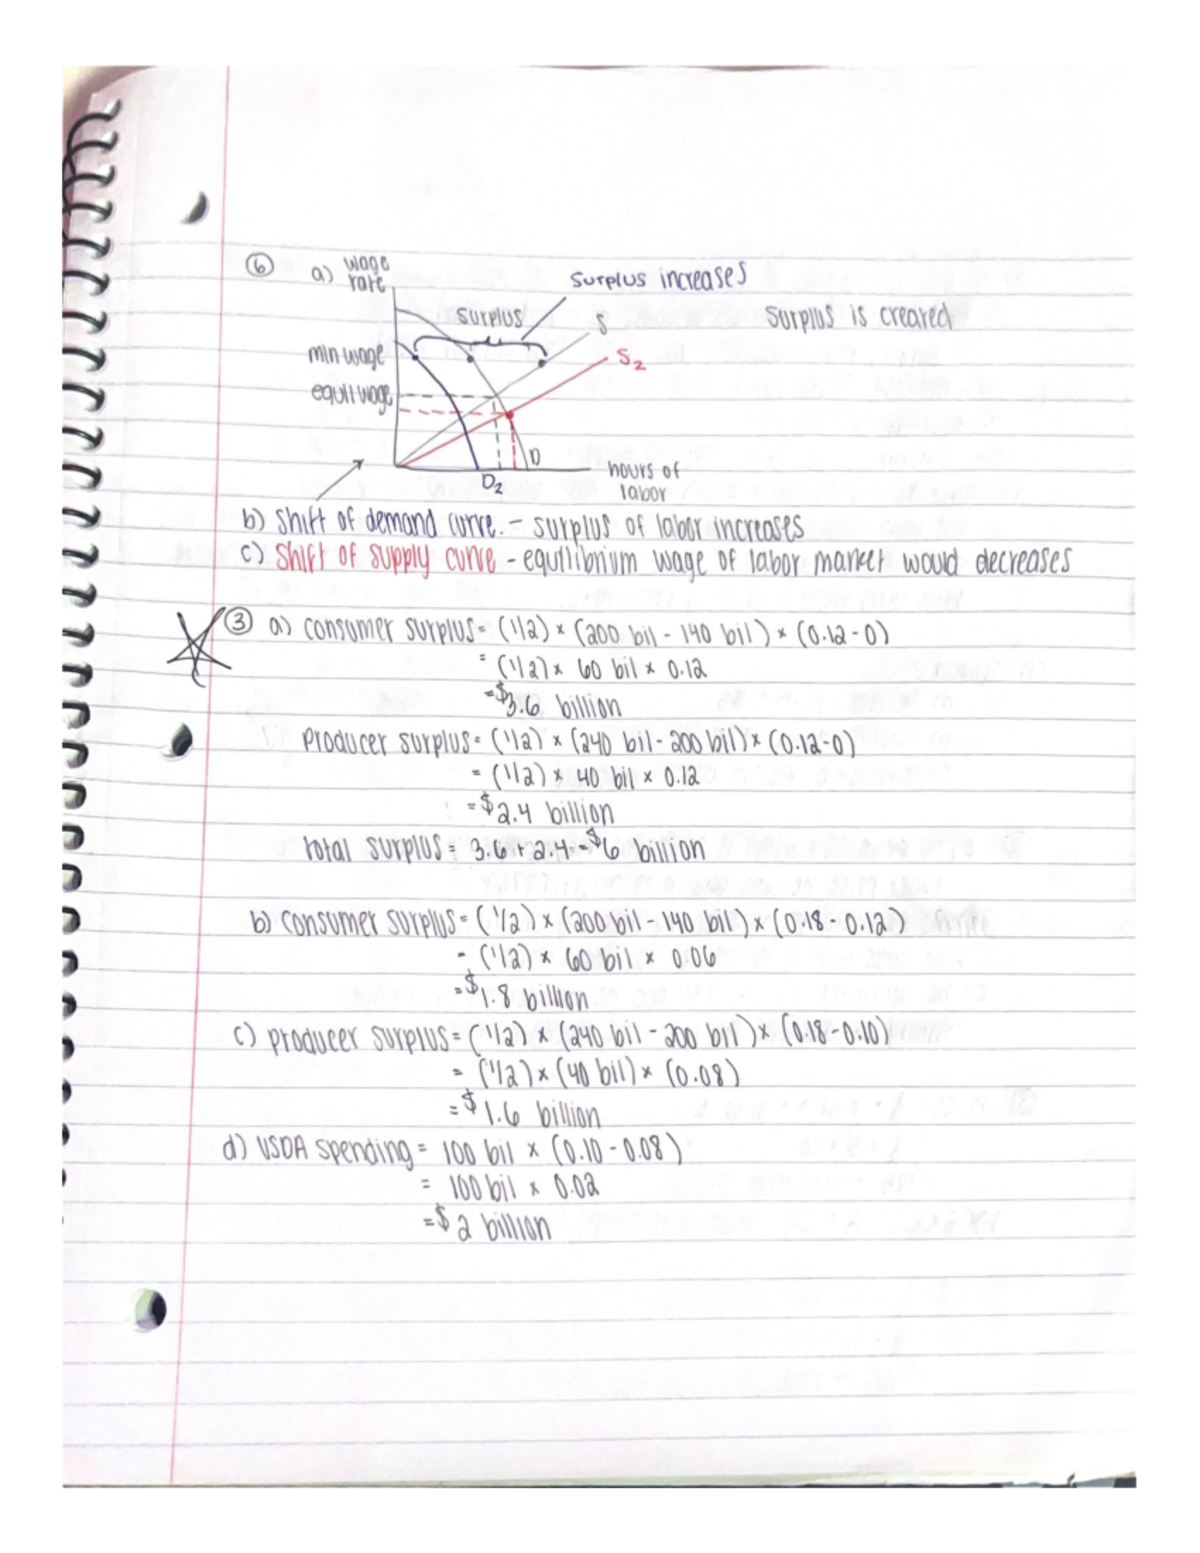 ⑥ a) wage rate
surplus increases
surplus
S
surplus is created
min wage
S₂
equil wage
D
hours of labor
D₂
b) shift of demand curve. - surplus of labor increases
c) shift of supply curve - equilibrium wage of labor market would decreases
③ a) consumer surplus = (1/2) × (200 bil - 140 bil) × (0.12 - 0)
= (1/2) × 60 bil × 0.12
= $3.6 billion
producer surplus = (1/2) × (240 bil - 200 bil) × (0.12-0)
= (1/2) × 40 bil × 0.12
= $2.4 billion
total surplus = 3.6 + 2.4 = $6 billion
b) consumer surplus = (1/2) × (200 bil - 140 bil) × (0.18 - 0.12)
= (1/2) × 60 bil × 0.06
= $1.8 billion
c) producer surplus = (1/2) × (240 bil - 200 bil) × (0.18 - 0.10)
= (1/2) × (40 bil) × (0.08)
= $1.6 billion
d) USDA spending = 100 bil × (0.10 - 0.08)
= 100 bil × 0.02
= $2 billion